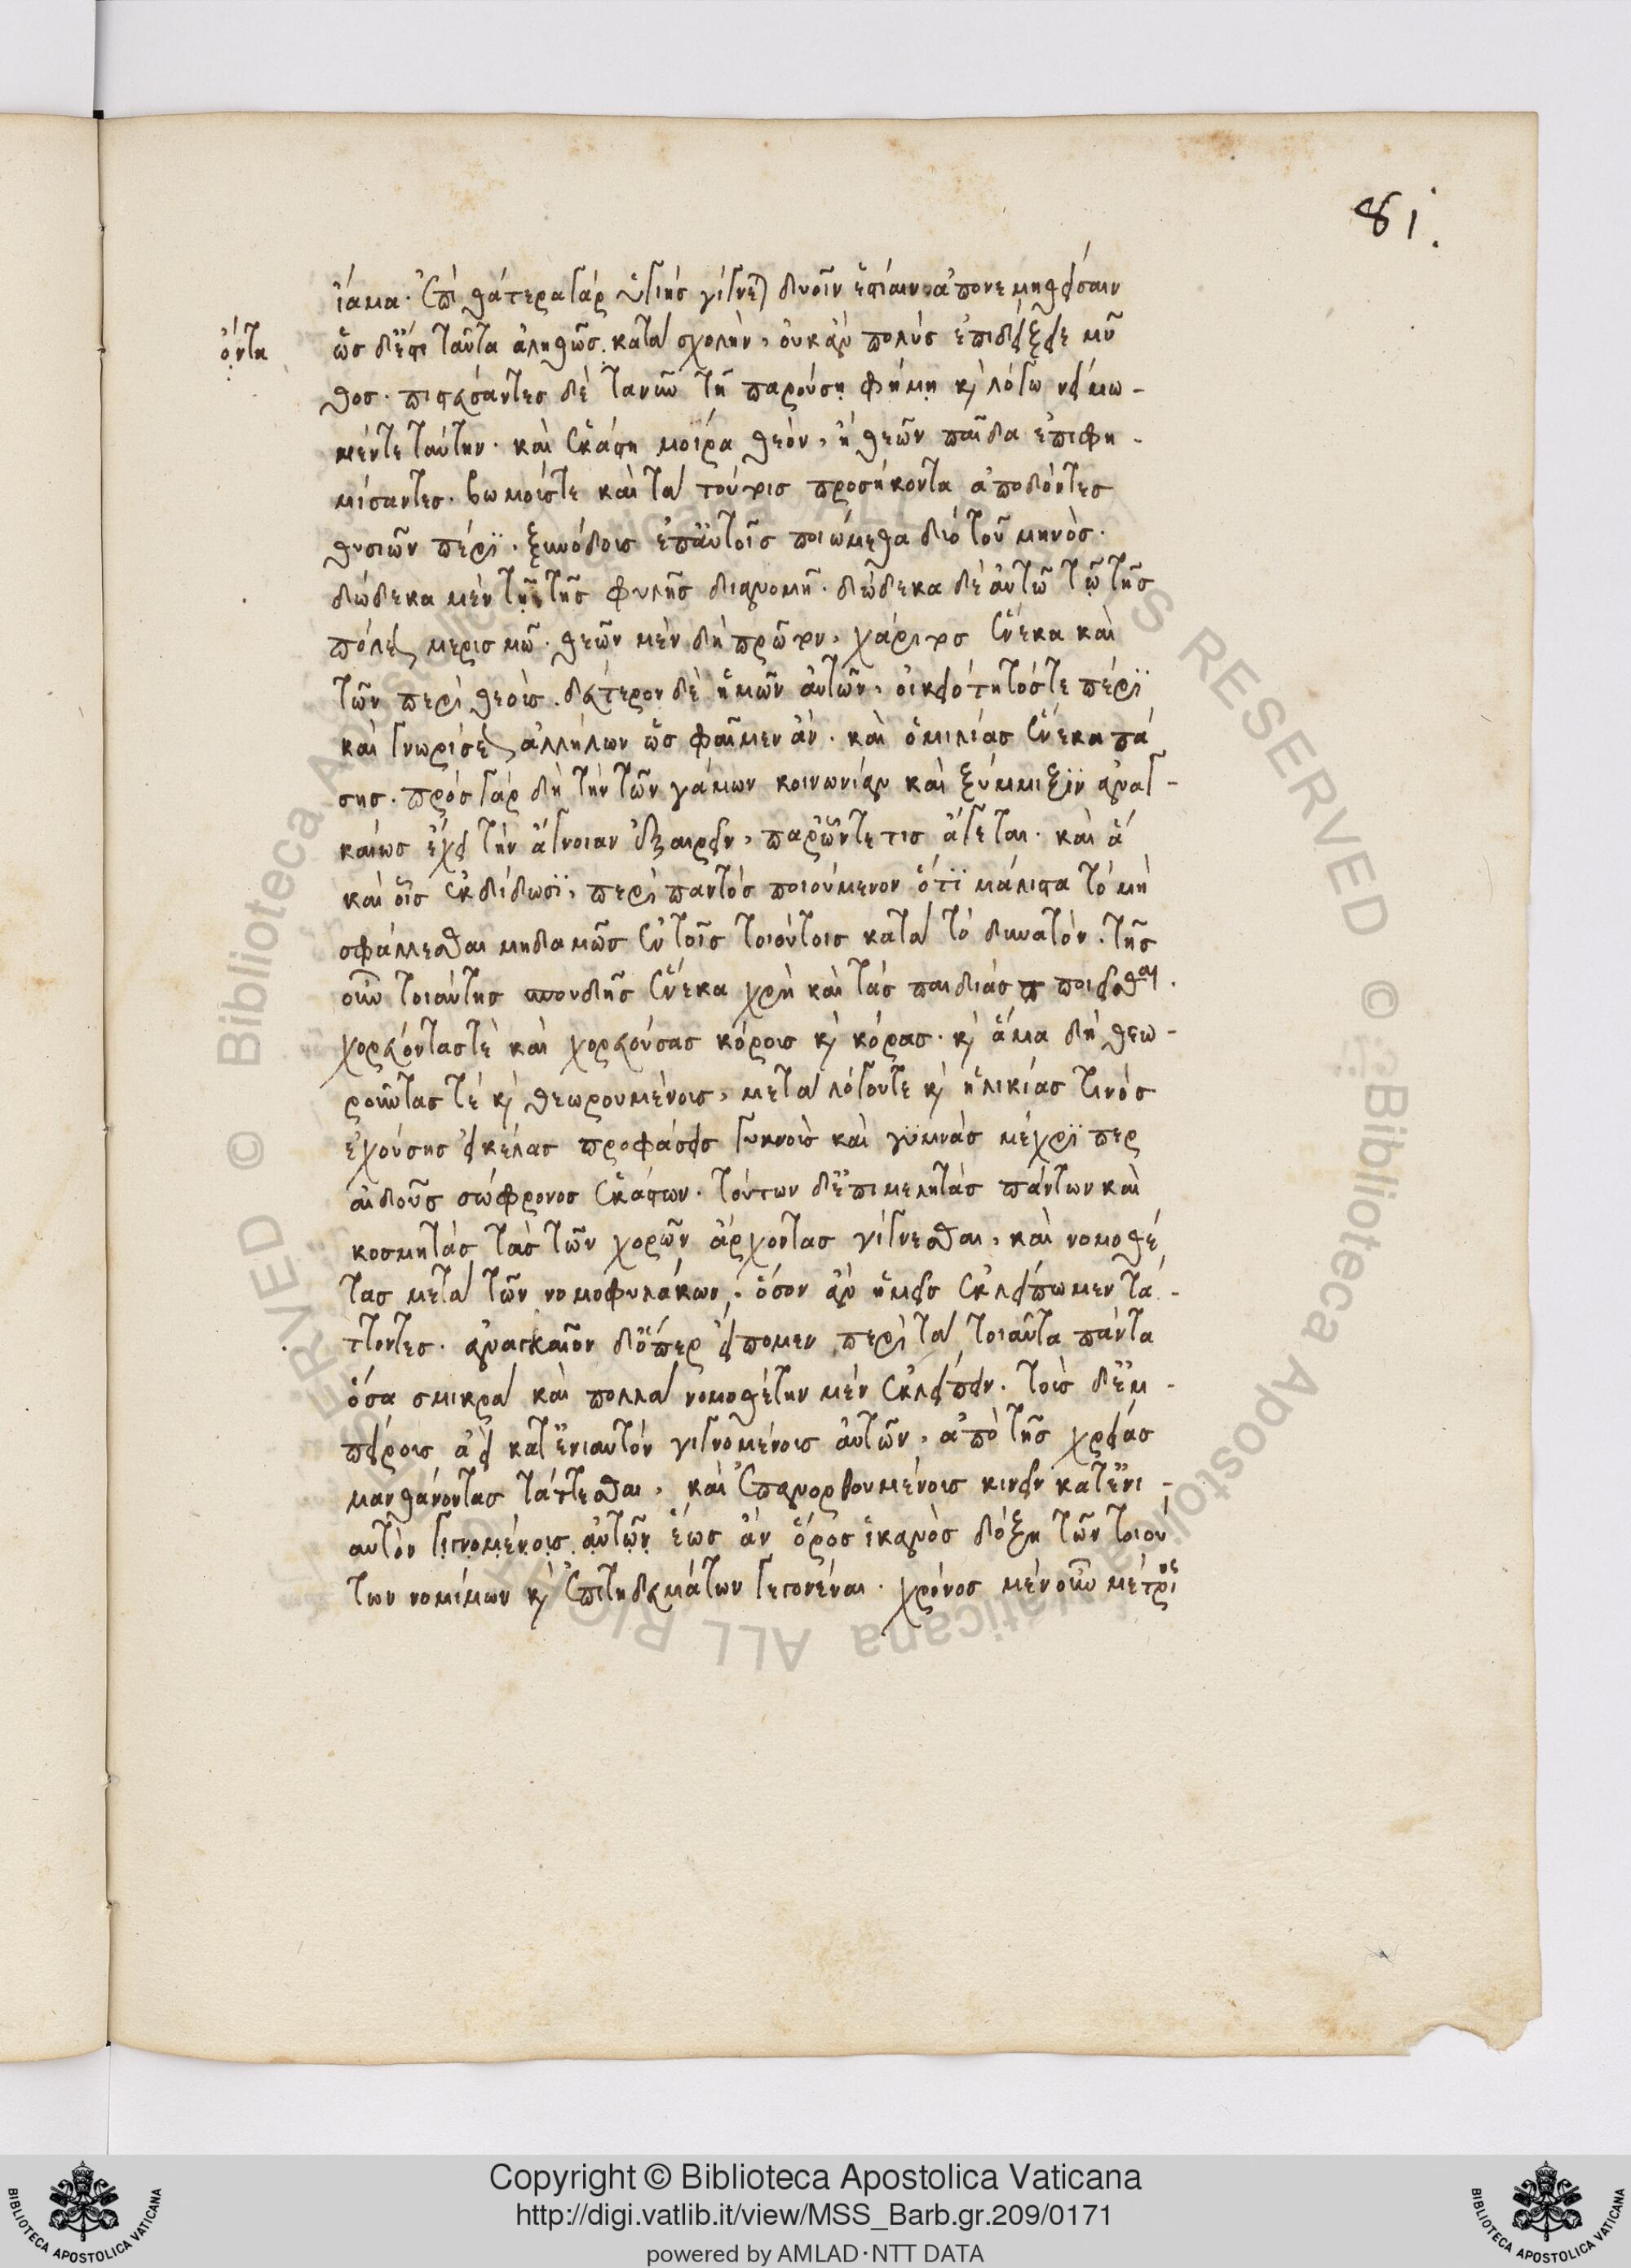 81.
ἴαμα· ἐπὶ θάτερα γὰρ ὑγιὴς γίγνεται δυοῖν ἑστίαιν ἀπονεμηθείσαιν
ὄντα
ὡς δέ ἐστι ταῦτα ἀληθῶς. κατὰ σχολὴν, οὐκ ἂν πολὺς ἐπιδείξειε μῦ
θος. πιστεύσαντες δὲ τανῦν τῇ παρούσῃ φήμῃ καὶ λόγῳ νείμω-
μέν τε ταύτην. καὶ ἑκάστῃ μοίρᾳ θεὸν, ἢ θεῶν παῖδα ἐπιφη-
μίσαντες. βωμούς τε καὶ τὰ τούτοις προσήκοντα ἀποδόντες
θυσιῶν πέρι. ξυνόδους ἐπ' αὐτοῖς ποιώμεθα δύο τοῦ μηνός.
δώδεκα μὲν τῇ τῆς φυλῆς διανομῇ. δώδεκα δὲ αὐτῷ τῷ τῆς
πόλεως μερισμῷ. θεῶν μὲν δὴ πρῶτον, χάριτος ἕνεκα καὶ
τῶν περὶ θεούς. δεύτερον δὲ ἡμῶν αὐτῶν, οἰκειότητός τε πέρι
καὶ γνωρίσεως ἀλλήλων ὡς φαῖμεν ἄν. καὶ ὁμιλίας ἕνεκα πά
σης. πρὸς γὰρ δὴ τὴν τῶν γάμων κοινωνίαν καὶ ξύμμιξιν ἀναγ-
καίως ἔχει τὴν ἄγνοιαν ἐξαιρεῖν, παρ' ὧν τέ τις ἄγεται. καὶ ἃ
καὶ οἷς ἐκδίδωσι, περὶ παντὸς ποιούμενον ὅτι μάλιστα τὸ μὴ
σφάλλεσθαι μηδαμῶς ἐν τοῖς τοιούτοις κατὰ τὸ δυνατόν. τῆς
οὖν τοιαύτης σπουδῆς ἕνεκα χρὴ καὶ τὰς παιδιὰς π ποιεῖσθαι.
χορεύοντάς τε καὶ χορευούσας κόρους καὶ κόρας. καὶ ἅμα δὴ θεω-
ροῦντάς τε καὶ θεωρουμένους, μετὰ λόγου τε καὶ ἡλικίας τινὸς
ἐχούσης εἰκείας προφάσεις γυμνοὺς καὶ γυμνὰς μέχρι περ
αἰδοῦς σώφρονος ἑκάστων. τούτων δ' ἐπιμελητὰς πάντων καὶ
κοσμητὰς τὰς τῶν χορῶν ἄρχοντας γίγνεσθαι, καὶ νομοθέ
τας μετὰ τῶν νομοφυλάκων, ὅσον ἂν ἡμεῖς ἐκλείπωμεν τά-
ττοντες. ἀναγκαῖον δὲ ὅπερ εἴπομεν περὶ τὰ τοιαῦτα πάντα
ὅσα σμικρὰ καὶ πολλὰ νομοθέτην μὲν ἐκλείπειν. τοὺς δ' ἐμ-
πείρους ἀεὶ κατ' ἐνιαυτὸν γιγνομένους αὐτῶν, ἀπὸ τῆς χρείας
μανθάνοντας τάττεσθαι, καὶ ἐπανορθουμένους κινεῖν κατ' ἐνι-
αυτὸν γιγνομένοις αὐτῶν ἕως ἂν ὅρος ἱκανὸς δόξῃ τῶν τοιού
των νομίμων καὶ ἐπιτηδευμάτων γεγονέναι. χρόνος μὲν οὖν μέτριος